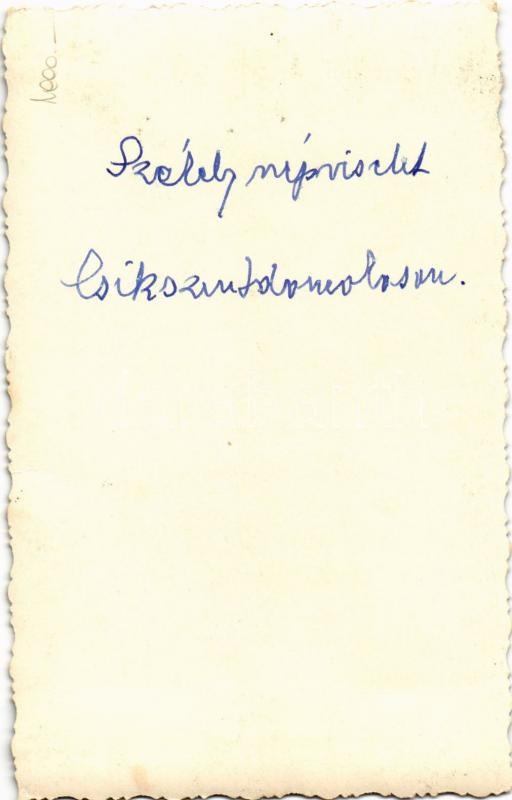 1000.-
Székely népviselet
Csikszentdomokoson.